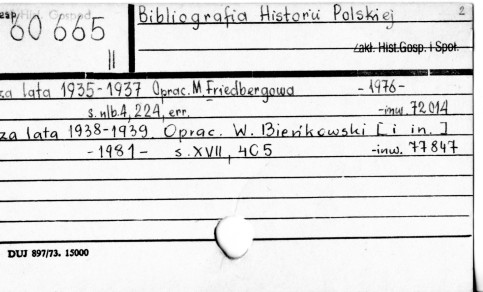 Bibliografia Historii Polskiej 2
60 665
II
Zakł. Hist. Gosp. i Społ.
za lata 1935-1937 Oprac. M. Friedbergowa - 1976 -
s. nlb. 4, 224, err. -inw. 72014
za lata 1938-1939. Oprac. W. Bieńkowski [i in.]
- 1981 - s. XVII, 405 -inw. 77847
DUJ 897/73. 15000